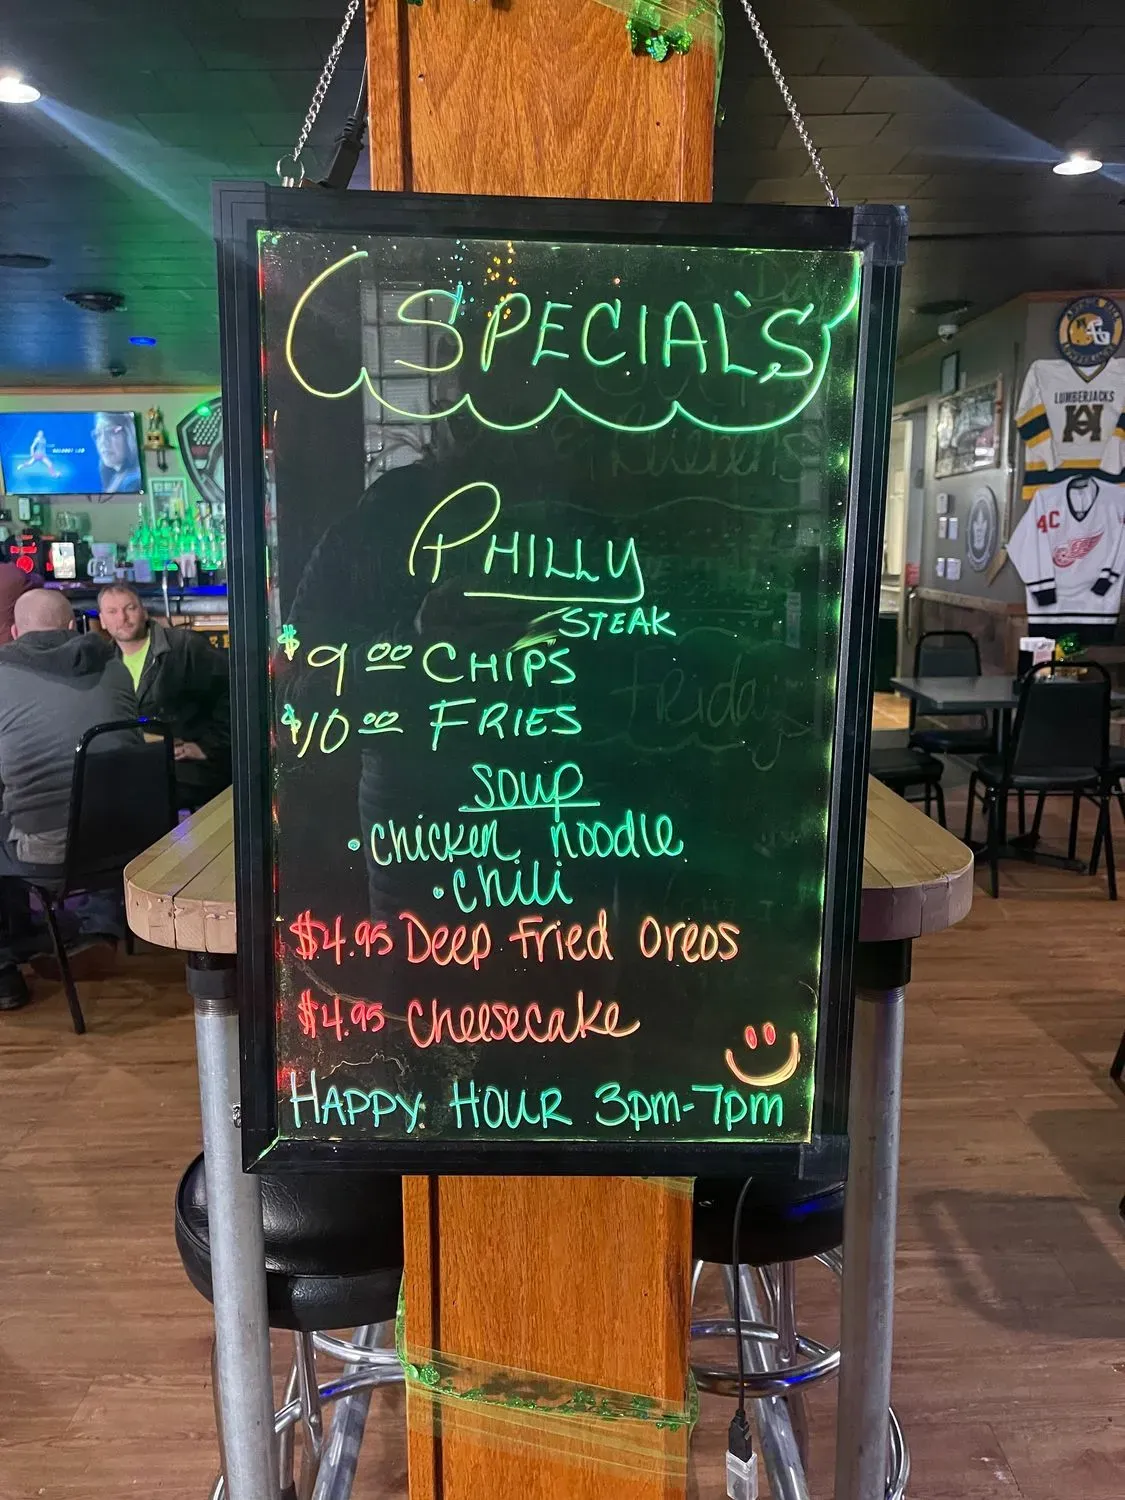 SPECIAL'S
PHILLY
STEAK
$9.00 CHIPS
$10.00 FRIES
SOUP
• chicken noodle
• chili
$4.95 Deep Fried Oreos
$4.95 Cheesecake
HAPPY HOUR 3pm-7pm
LUMBERJACKS
4C